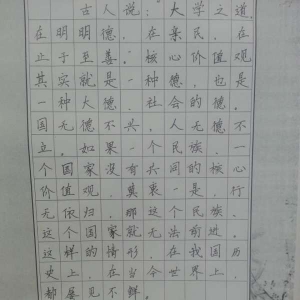 古人说：“大学之道，
在明明德，在亲民，在
止于至善。”核心价值观
其实就是一种德，也是
一种大德，社会的德。
国无德不兴，人无德不
立。如果一个民族、一
个国家没有共同的核心
价值观，莫衷一是，行
无依归，那这个民族、
这个国家就无法前进。
这样的情形，在我国历
史上，在当今世界上，
都屡见不鲜。